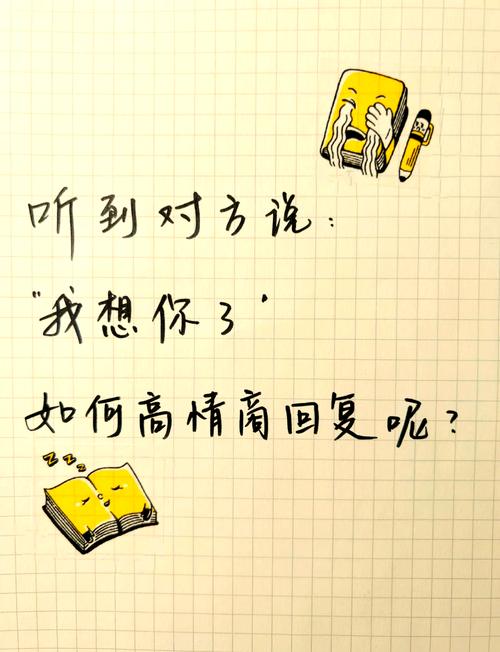 听到对方说：
“我想你了’
如何高情商回复呢？
z z z